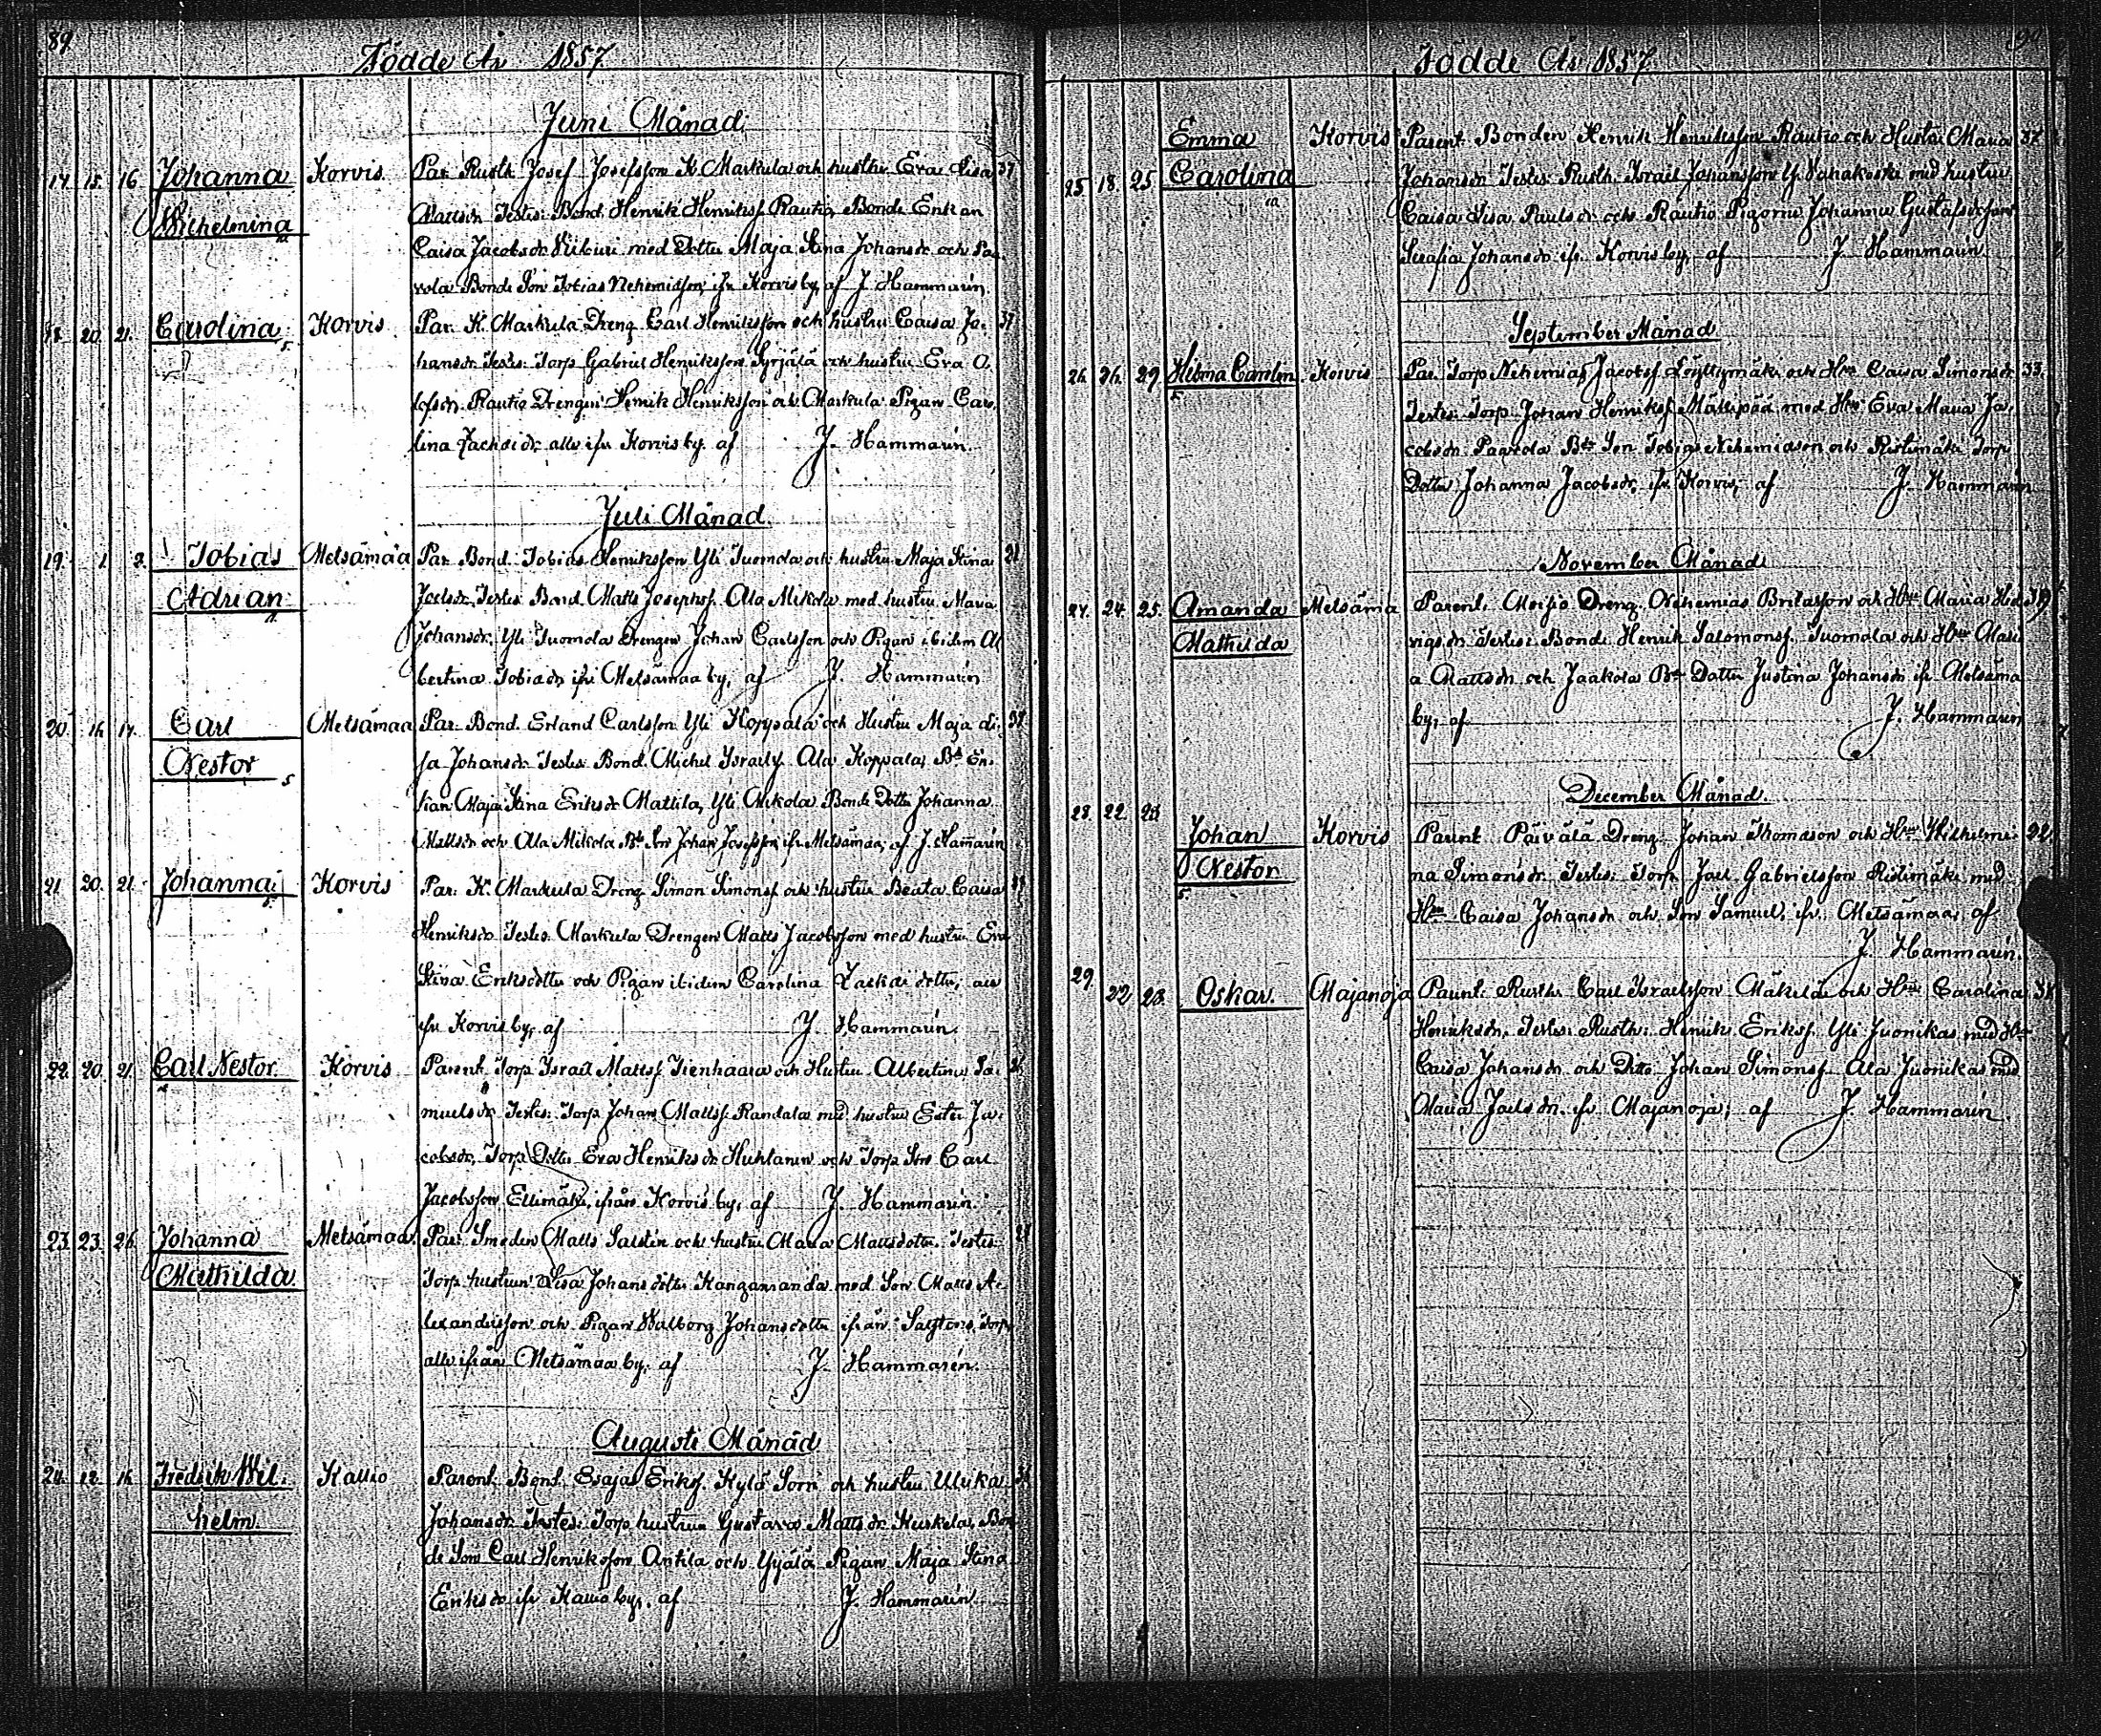 89
Födde År 1857
Juni Månad
17. 15. 16. Johanna Korvis Par. Rusth. Josef Josefsson K. Markula och hustru Eva Lisa 37
Wilhelmina Mattsdr. Testes: Bond. Henrik Henrikss. Rautio, Bonde Enkan
Caisa Jacobsdr. med Dotter Maja Stina Johansdr. och Paa
vola Bonde Son Tobias Nehemiasson ifr. Korvis by, af J. Hammarén.
18. 20. 21. Carolina Korvis Par. K. Markula Dreng Carl Henriksson och hustru Caisa Jo- 37
hansdr. Testes: Torp. Gabriel Henriksson Syrjälä och hustru Eva O-
lofsdr. Rautio Drengen Henrik Henriksson och Markula Pigan Caro-
lina Zacheidr. alla ifr. Korvis by. af J. Hammarén.
Juli Månad
19. 1. 2. Tobias Metsämaa Par. Bond. Tobias Henriksson Yli Tuomola och hustru Maja Stina 21
Adrian Joelsdr. Testes: Bond. Matts Josephss. Ala Mikola med hustru Maria
Johansdr. Yli Tuomola Drengen Johan Carlsson och Pigan ibidem Al
bertina Tobiadr. ifr. Metsämaa by, af J. Hammarén
20. 16. 17. Carl Metsämaa Par. Bond. Erland Carlsson Yli Koppala och Hustru Maja Li- 38
Nestor sa Johansdr. Testes: Bond. Michel Israelss. Ala Koppala, Bd. En-
kan Maja Stina Eriksdr. Mattila, Yli Mikola Bonde Dotter Johanna
Mattsdr. och Ala Mikola Bde Son Johan Josefsson ifr. Metsämaa, af J. Hammarén
21. 20. 21. Johanna Korvis Par. K. Markula Dreng Simon Simonss. och hustru Beata Caisa
Henriksdr. Testes: Markula Drengen Matts Jacobsson med hustru Eva
Stina Eriksdotter och Pigan ibidem Carolina Zachei dotter, alla
ifr. Korvis by, af J. Hammarén.
22. 20. 21. Carl Nestor Korvis Parent. Torp. Israel Mattss. Tienhaara och Hustru Albertina Sa-
muelsdr. Testes: Torp. Johan Mattss. Randala med hustru Ester Ja-
cobsdr., Torp. Dotter Eva Henriksdr. Huhtanen och Torp. Son Carl
Jacobsson Ellimäki, ifrån Korvis by, af J. Hammarén.
23. 23. 26. Johanna Metsämaa Par. Smeden Matts Salstén och hustru Maria Mattsdotter. Testes:
Mathilda Torp. hustrun Lisa Johansdotter Kangasranda med Son Matts A-
lexandersson och Pigan Walborg Johansdotter ifrån Torp.
alla ifrån Metsämaa by, af J. Hammarén.
Augusti Månad
24. 12. 16. Fredrik Wil- Kauio Parent. Bond. Esajas Erikss. Kylä Sorri och hustru Ulrika
helm. Johansdr. Testes: Torp. hustrun Gustava Mattsdr. Huskela, Bon
de Son Carl Henriksson Antila och Yrjälä Pigan Maja Stina
Eriksdr. ifr. Kauio by, af J. Hammarén.
90
Födde År 1857
Emma Korvis Parent. Bonden Henrik Henriksson Rautio och Hustru Maria 37
25. 18. 25. Carolina Johansdr. Testes: Rusth. Israel Johansson Y. Vahakoski med hustru
Caisa Lisa Paulsdr. och Rautio Pigorna Johanna Gustafsdr. samt
Serafia Johansdr. ifr. Korvis by, af J. Hammarén.
September Månad
26. 26. 29. Hilma Carolin. Korvis Par. Torp. Nehemias Jacobss. Löyttymäki och Hru Caisa Simonsdr. 33.
Testes: Torp. Johan Henrikss. Mäkipää med Hru Eva Maria Ja-
cobsdr. Paavola Bde Son Tobias Nehemiasson och Ristimäki Torp.
Dotter Johanna Jacobsdr. ifr. Korvis, af J. Hammarén
November Månad
27. 24. 25. Amanda Metsäma Parent. Moisio Dreng Nehemias Britasson och Hru Maria Hed
Mathilda vigsdr. Testes: Bonde Henrik Salomonss. Tuomola och Hru Mari
a Mattsdr. och Jaakola Bde Dotter Justina Johansdr. ifr. Metsäma
by, af J. Hammarén
December Månad.
28. 22. 28. Johan Korvis Parent. Päivälä Dreng Johan Thomasson och Hru Wilhelmi- 22.
Nestor na Simonsdr. Testes: Torp. Joel Gabrielsson Ristimäki med
Hru Caisa Johansdr. och Son Samuel, ifr. Metsämaa, af
J. Hammarén.
29. 22. 28. Oskar. Majanoja Parent. Rusth. Carl Israelsson Mäkelä och Hru Carolina 38
Henriksdr. Testes: Rusth. Henrik Erikss. Yli Juonikas med Hru
Caisa Johansdr. och Ditto Johan Simonss. Ala Juonikas med
Maria Joelsdr. ifr. Majanoja, af J. Hammarén.